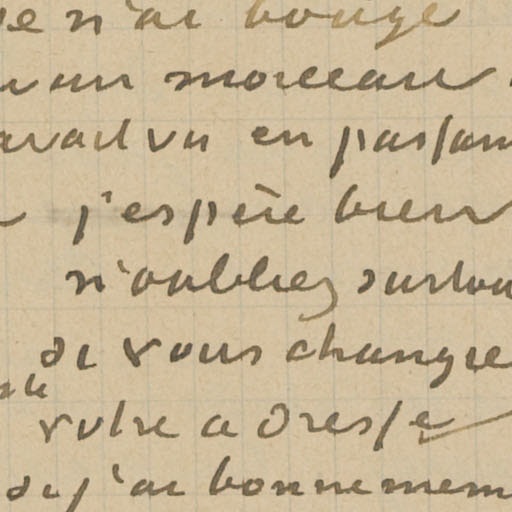 je n'ai bougé
un morceau
avait vu en passan
j'espère bien
n'oubliez surtou
si vous changie
votre adresse
si j'ai bonnemem